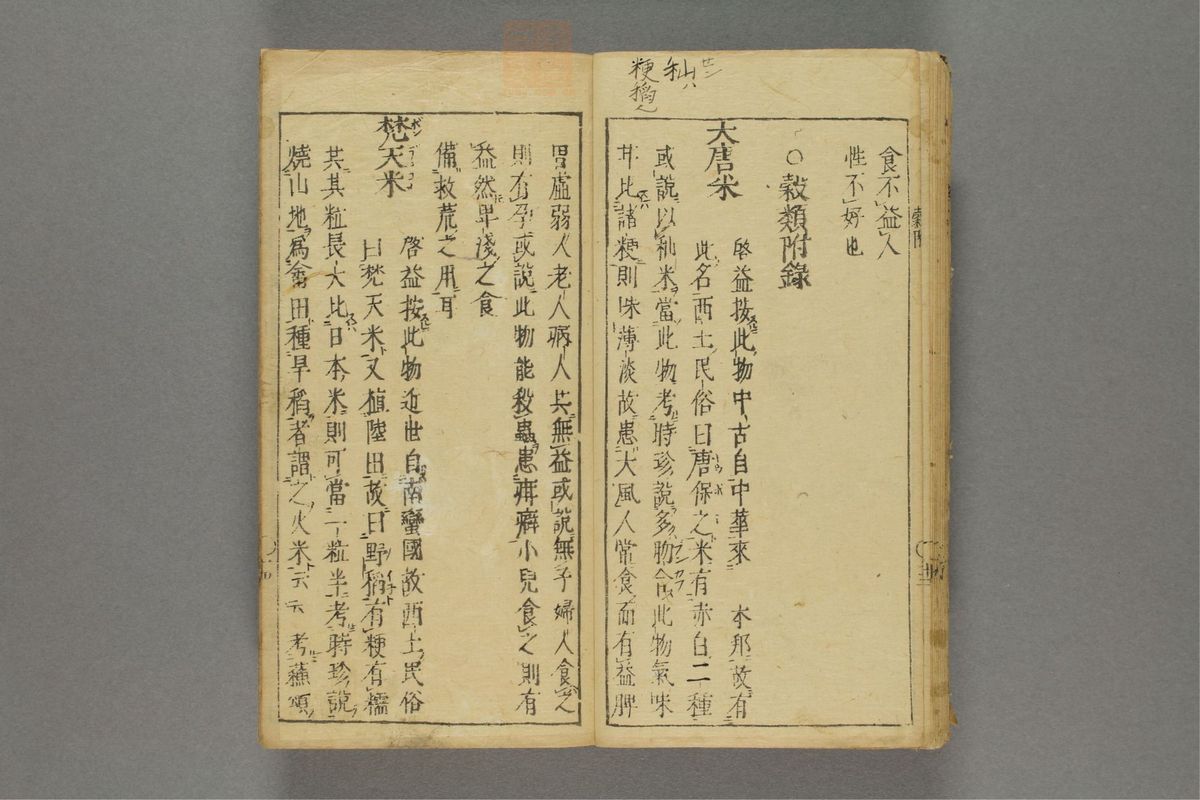 食不益人
性不好也
○穀類附錄
大唐米
啓益按此物中古自中華來 本邦故有
此名西土民俗曰唐保之米有赤白二種
或說以秈米當此物考時珍說多吻合此物氣味
共比諸粳則味薄淡故患大風人常食而有益脾
胃虛弱人老人病人共無益或說無子婦人食之
則有孕或說此物能殺蟲患疳癖小兒食之則有
益然卑淺之食
備救荒之用耳
梵天米
啓益按此物近世自南蠻國故西土民俗
曰梵天米又植陸田故曰野稻有粳有糯
其其粒長大比日本米則可當一粒半考時珍說
燒山地爲畬田種旱稻者謂之火米云云 考蘇頌
秈ハ
セン
粳稻